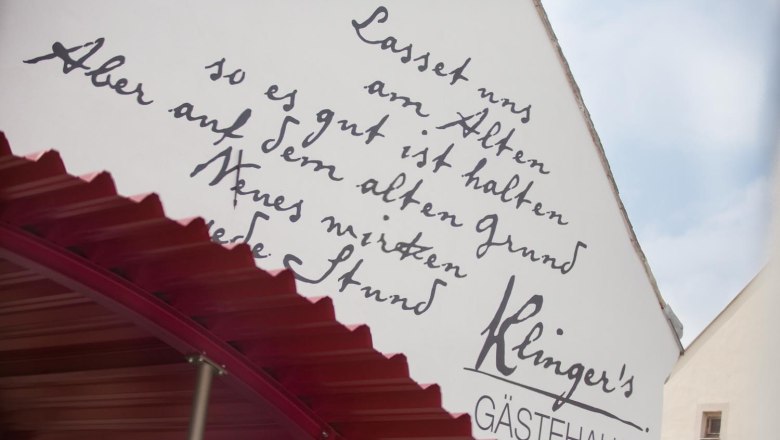 Lasset uns
am Alten
so es gut ist halten
Aber auf dem alten Grund
Neues wirken
jede Stund
Klinger's
GÄSTEHAU